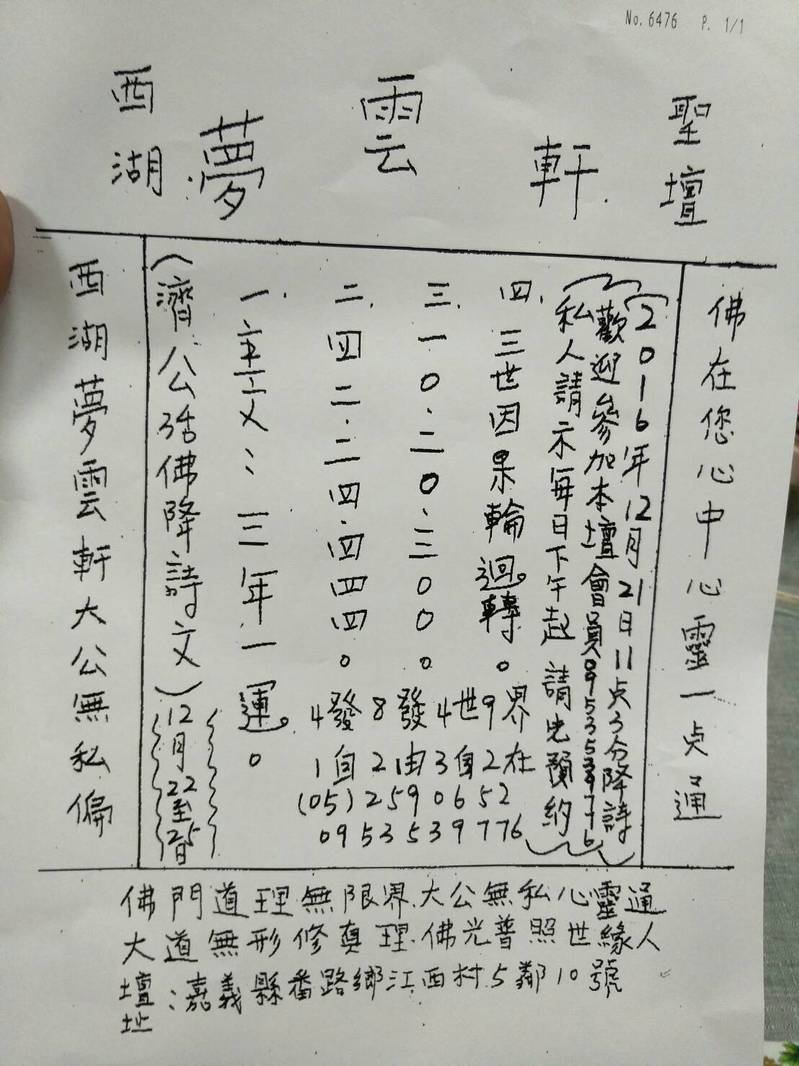 No.6476 P. 1/1
西湖 夢雲軒 聖壇
佛在您心中心靈一点通
(2016年12月21日11点3分降詩
歡迎參加本壇會員0953539776
私人請示每日下午起 請先預約)
四.三世因果輪迴轉。
三.一0.二0.三000。
二.四二.二四.四四四。
一.主文:三年一運。
4發8發4世9界
1自2由3自2在
(05)2590652
0953539776
(濟公活佛降詩文)12月22至25日
西湖夢雲軒大公無私偏
佛門道理無限界.大公無私心靈通
大道無形修真理.佛光普照世緣人
壇址:嘉義縣番路鄉江西村5鄰10號